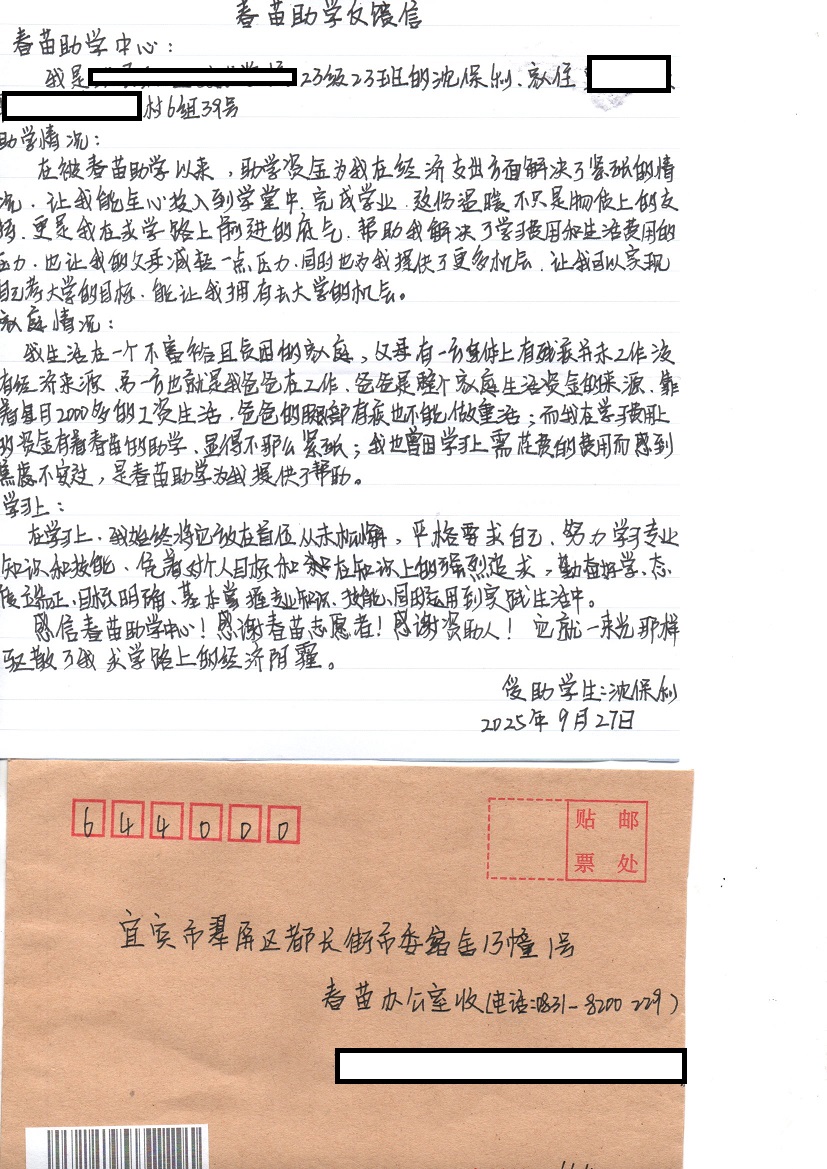 春苗助学反馈信
春苗助学中心:
我是 23级23班的沈保利、家住
村6组39号
助学情况:
在被春苗助学以来,助学资金为我在经济支出方面解决了紧张的情
况,让我能全心投入到学堂中,完成学业,这份温暖不只是物质上的支
持,更是我在求学路上前进的底气,帮助我解决了学习费用和生活费用的
压力,也让我的父母减轻一点压力,同时也为我提供了更多机会,让我可以实现
自己考大学的目标,能让我拥有去大学的机会。
家庭情况:
我生活在一个不富裕且贫困的家庭,父母有一方身体上有残疾并未工作没
有经济来源,另一方也就是我爸爸在工作,爸爸是整个家庭生活资金的来源,靠
着每月2000多的工资生活,爸爸的腿部有疾也不能做重活;而我在学习费用上
的资金有着春苗的助学,显得不那么紧张;我也曾因学习上需花费的费用而感到
焦虑不安过,是春苗助学为我提供了帮助。
学习上:
在学习上,我始终将它放在首位从未松懈,严格要求自己,努力学习专业
知识和技能,凭着对个人目标和在知识上的强烈追求,勤奋好学、态
度端正、目标明确、基本掌握专业知识、技能、同时运用到实践生活中。
感信春苗助学中心!感谢春苗志愿者!感谢资助人!它就一束光那样
驱散了我求学路上的经济阴霾。
受助学生:沈保利
2025年9月27日
644000
贴 邮
票 处
宜宾市翠屏区都长街市委宿舍13幢1号
春苗办公室收(电话:0831-8200229)